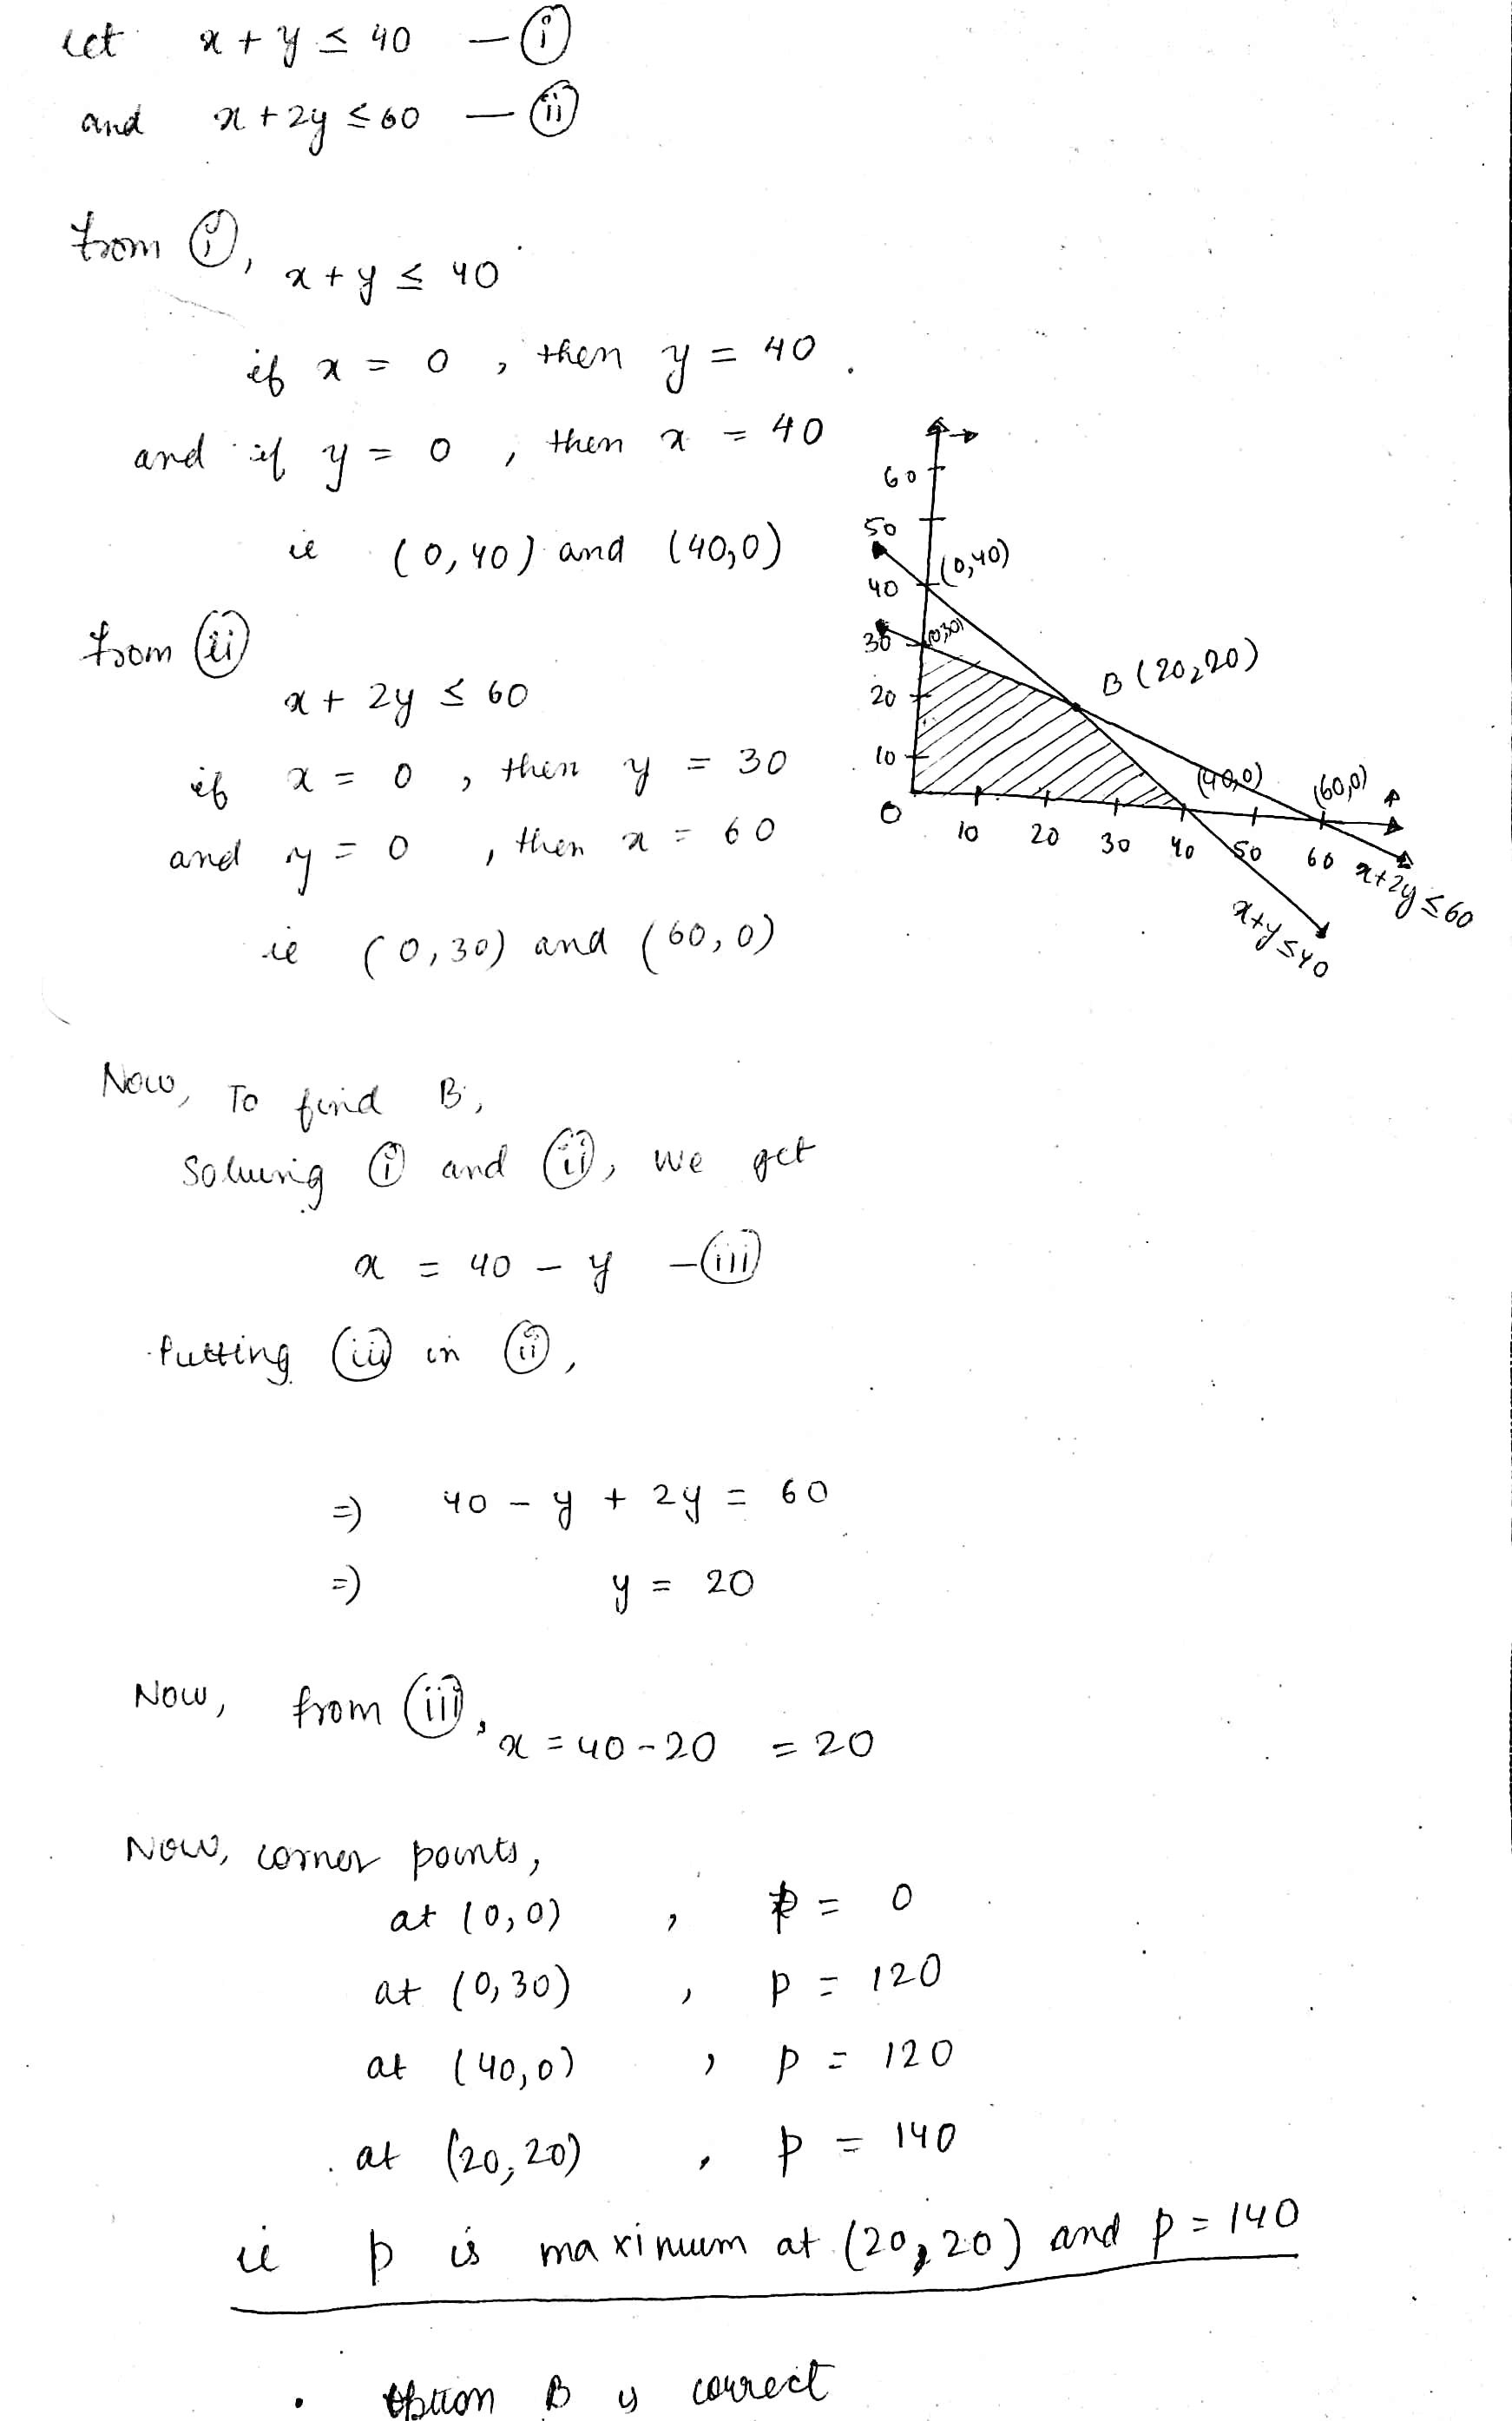 let x + y ≤ 40 — (i)
and x + 2y ≤ 60 — (ii)
From (i),
x + y ≤ 40
if x = 0 , then y = 40 .
and if y = 0 , then x = 40
ie (0,40) and (40,0)
From (ii)
x + 2y ≤ 60
if x = 0 , then y = 30
and y = 0 , then x = 60
ie (0,30) and (60,0)
60
50
40
30
20
10
0
10 20 30 40 50 60
(0,40)
(0,30)
B (20,20)
(40,0)
(60,0)
x+2y ≤ 60
x+y ≤ 40
Now, To find B,
Solving (i) and (ii), we get
x = 40 - y - (iii)
Putting (iii) in (ii),
=) 40 - y + 2y = 60
=) y = 20
Now, from (iii),
x = 40 - 20 = 20
Now, corner points,
at (0,0) , p = 0
at (0,30) , p = 120
at (40,0) , p = 120
at (20,20) , p = 140
ie p is maxinum at (20,20) and p = 140
• Option B is correct